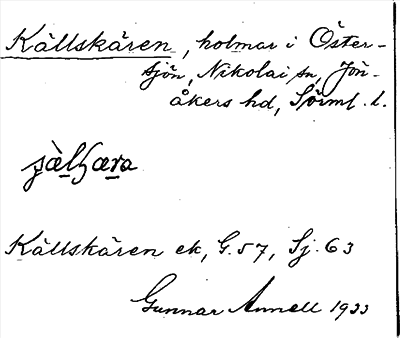 Källskären, holmar i Öster-
sjön, Nikolai sn, Jön-
åkers hd, Sörml. l.
Källskären ek, G. 57, Sj. 63
Gunnar Annell 1933